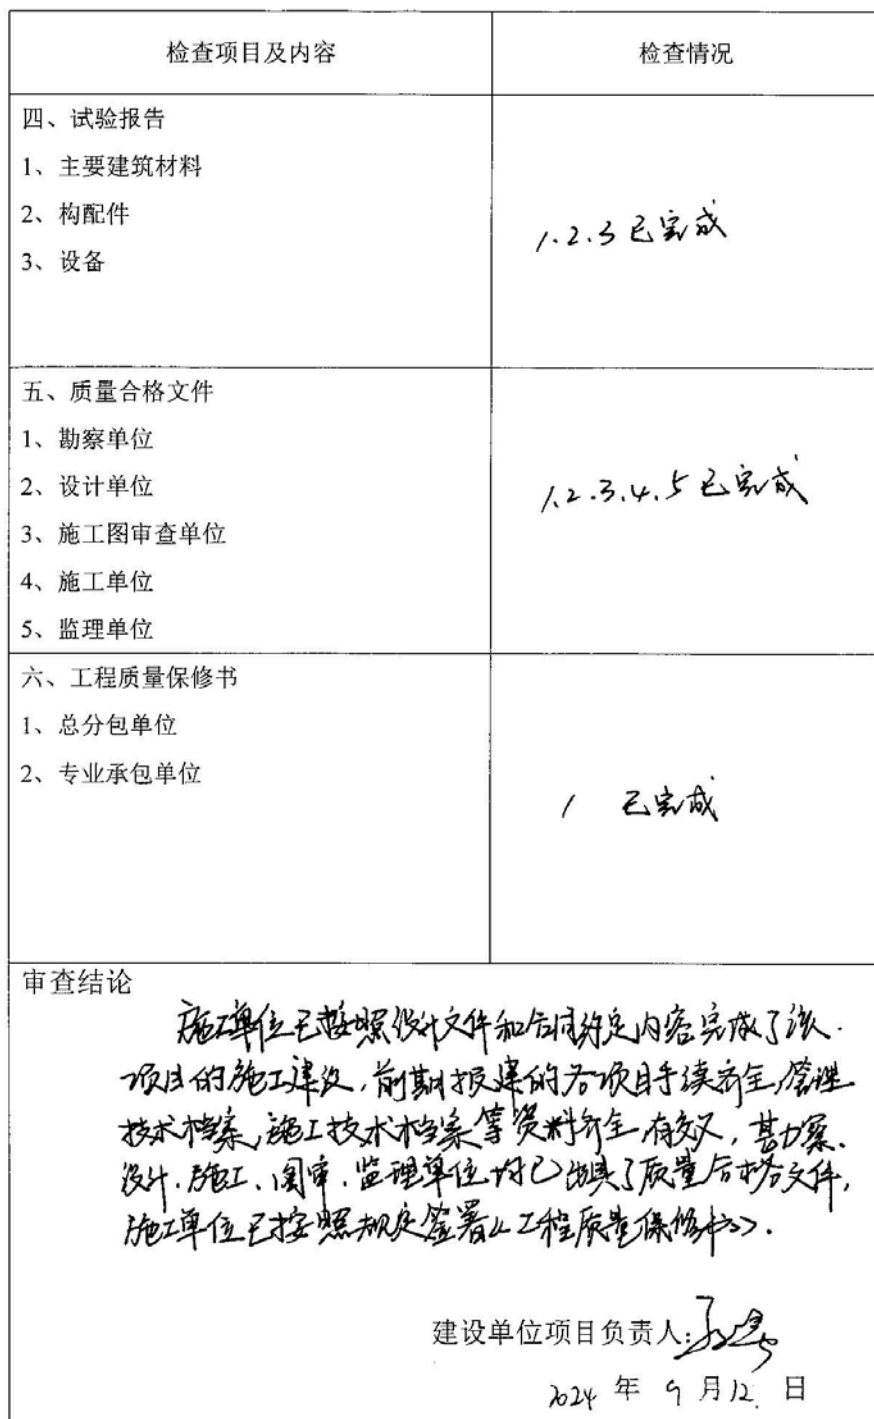 检查项目及内容 检查情况
四、试验报告
1、主要建筑材料
2、构配件
3、设备
1.2.3 已完成
五、质量合格文件
1、勘察单位
2、设计单位
3、施工图审查单位
4、施工单位
5、监理单位
1.2.3.4.5 已完成
六、工程质量保修书
1、总分包单位
2、专业承包单位
1 已完成
审查结论
施工单位已按照设计文件和合同约定内容完成了该
项目的施工建设,前期报建的各项目手续齐全,管理
技术档案,施工技术档案等资料齐全,有效,勘察、
设计、施工、图审、监理单位均已出具了质量合格文件,
施工单位已按照规定签署《工程质量保修书》.
建设单位项目负责人:
2024 年 9 月 12 日